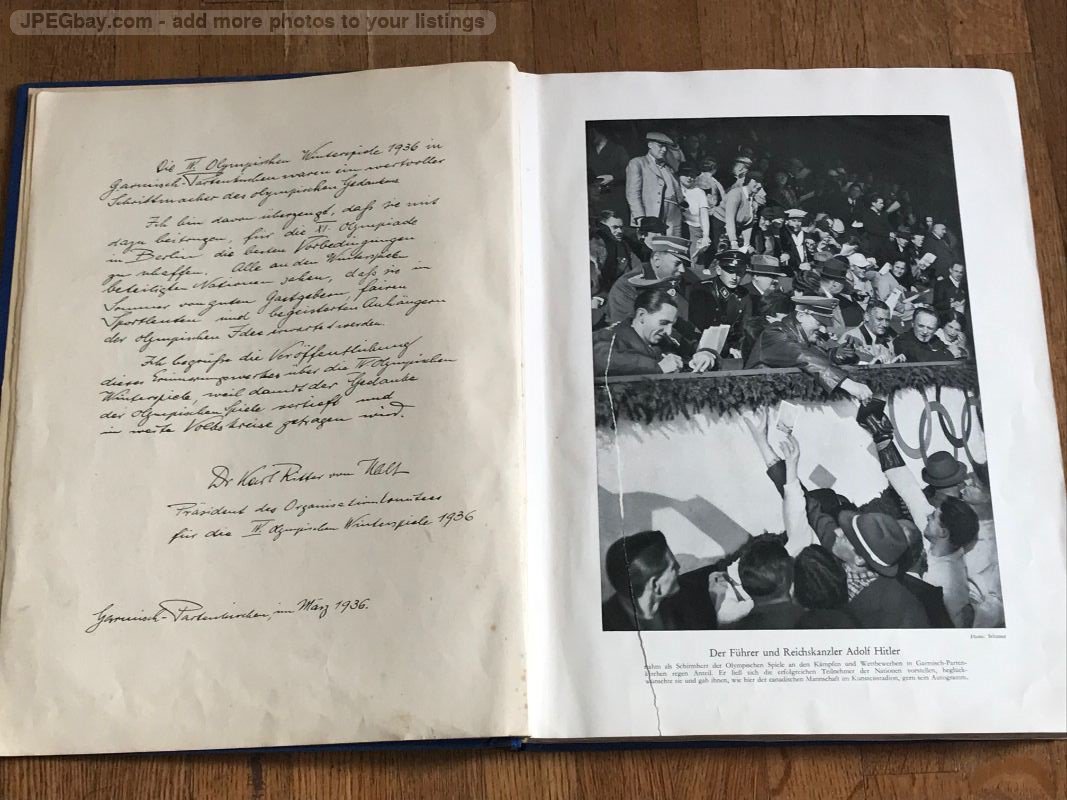 JPEGbay.com - add more photos to your listings
Die IV. Olympischen Winterspiele 1936 in
Garmisch-Partenkirchen waren ein wertvoller
Schrittmacher des olympischen Gedankens
Ich bin davon überzeugt, daß sie mit
dazu beitrugen, für die XI. Olympiade
in Berlin die besten Vorbedingungen
zu schaffen. Alle an den Winterspielen
beteiligten Nationen sahen, daß sie im
Sommer von guten Gastgebern, fairen
Sportleuten und begeisterten Anhängern
der olympischen Idee erwartet werden.
Ich begrüße die Veröffentlichung
dieses Erinnerungswerkes über die IV. Olympischen
Winterspiele, weil damit der Gedanke
der Olympischen Spiele vertieft und
in weite Volkskreise getragen wird.
Dr Karl Ritter von Halt
Präsident des Organisationskomitees
für die IV. Olympischen Winterspiele 1936
Garmisch-Partenkirchen, im März 1936.
Der Führer und Reichskanzler Adolf Hitler
nahm als Schirmherr der Olympischen Spiele an den Kämpfen und Wettbewerben in Garmisch-Parten-
kirchen regen Anteil. Er ließ sich die erfolgreichen Teilnehmer der Nationen vorstellen, beglück-
wünschte sie und gab ihnen, wie hier der canadischen Mannschaft im Kunsteisstadion, gern sein Autogramm.